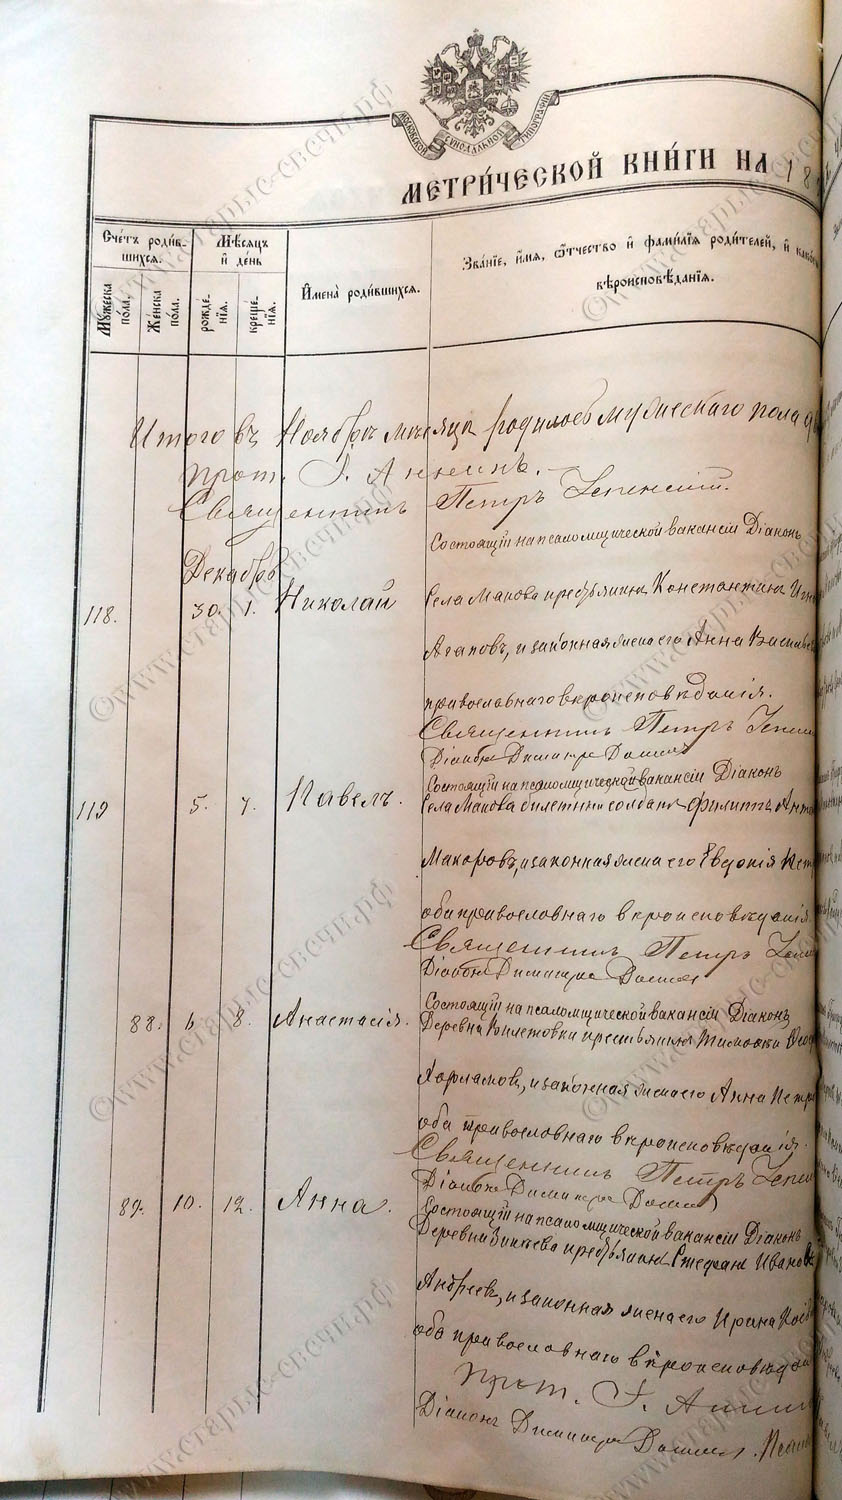 МОСКОВСКОЙ СѴНОДАЛЬНОЙ ТИПОГРАФІИ
МЕТРИ́ЧЕСКОЙ КНИ́ГИ НА 18
Сче́тъ роди́в-
шихся.
Мꙋ́жеска
по́ла.
Же́нска
по́ла.
Мѣ́сяцъ
и҆ де́нь
рожде́-
нїя.
креще́-
нїя.
И҆мена̀ роди́вшихся.
Зва́нїе, и҆́мя, ѻ҆́тчество и҆ фами́лїя роди́телей, и҆ како́
вѣроисповѣ́данїя.
Итого въ Ноябрѣ мѣсяцѣ родилось мужескаго пола
прот. І. Аннинъ.
Священникъ Петръ Успенскій.
Состоящій на псаломщической вакансіи Діаконъ
Декабрь
118. 30. 1. Николай Села Макова крестьянинъ Константинъ
Агаповъ, и законная жена его Анна Василье
православнаго вѣроисповѣданія.
Священникъ Петръ Успен
Діаконъ Димитрій
Состоящій на псаломщической вакансіи Діаконъ
119 5. 7. Павелъ. Села Макова билетный солдатъ Филиппъ Анто
Макаровъ, и законная жена его Евдокія Петр
оба православнаго вѣроисповѣданія.
Священникъ Петръ Успен
Діаконъ Димитрій
Состоящій на псаломщической вакансіи Діаконъ
88. 6 8. Анастасія. Деревни крестьянинъ Тимофей
Харламовъ, и законная жена его Анна Петро
оба православнаго вѣроисповѣданія.
Священникъ Петръ Успен
Діаконъ Димитрій
Состоящій на псаломщической вакансіи Діаконъ
89. 10. 12. Анна. Деревни крестьянинъ Стефанъ Иванов
Андреевъ, и законная жена его Ирина
оба православнаго вѣроисповѣдан
Прот. І. Аннин
Діаконъ Димитрій
©www.старые-свечи.рф